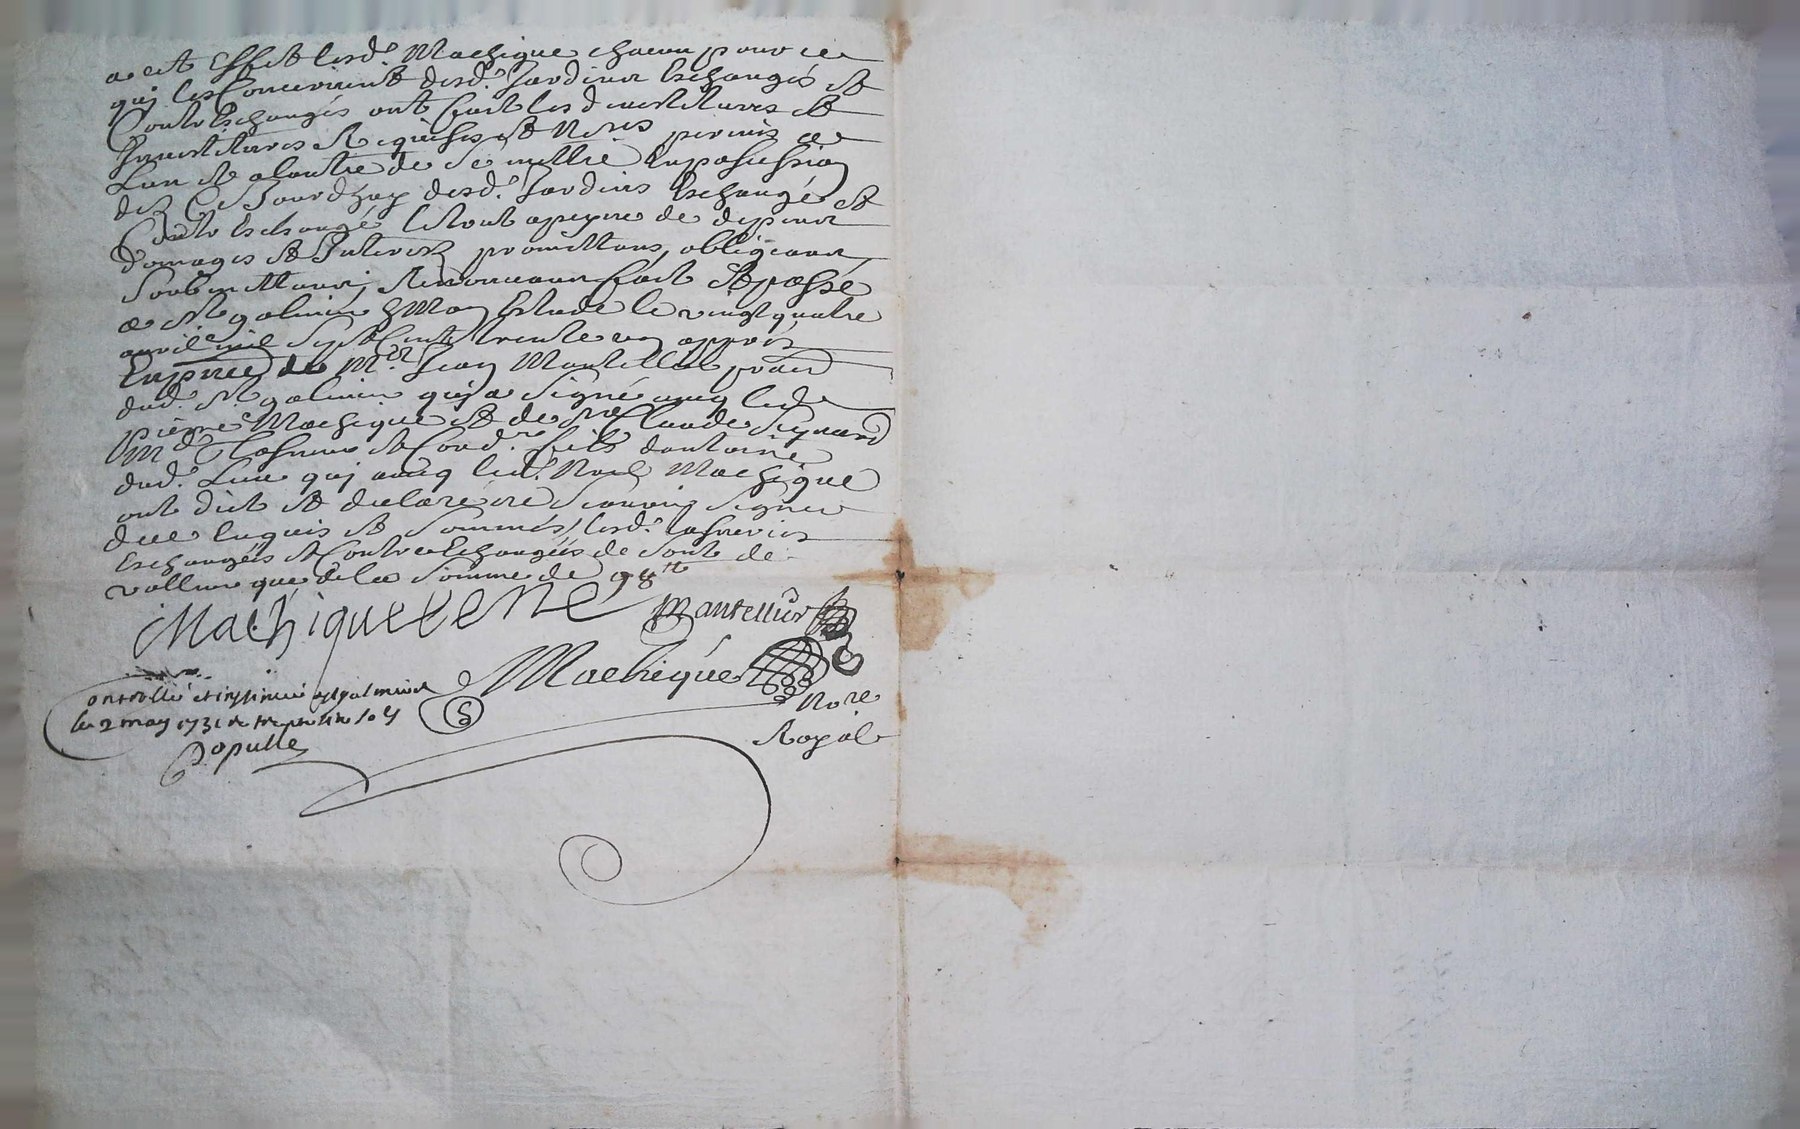 a cet Effet lesd. Machique chacun pour ce
quj les Concernent desd. Jardins Eschangés et
Contr'Eschangés ont fait les devestitures et
Jnvestitures Requises et Nores permis a
Lun et alautre de Se mettre En possession
dez Ce Jourdhuy desd. Jardins Eschangé et
Contr'Eschangé Letout apeyne de despens
Domages et Jnterests promettans, obligeans,
Soubmettans, Renonceans fait et passé
a St galmier En mon Estude le vingt quatre
avril mil Sept Cent trente un appres
En pnce de Mr. Jean Mantellier
dud. St galmier quj a Signé avecq led.
pierre Machique et de Sr Claude
Md
dud. Lieu quj avecq led. Noel Machique
ont dict et declaré ne Scavoir Signer
de ce Enquis et Sommés, lesd.
Eschangés et Contre Eschangées de Sont de
valleur que dela Somme de 98tt
Machique Mantellier
Machique
Nore
Royal
Controllé et insinué a st galmier
le 2 may 1731
Populle